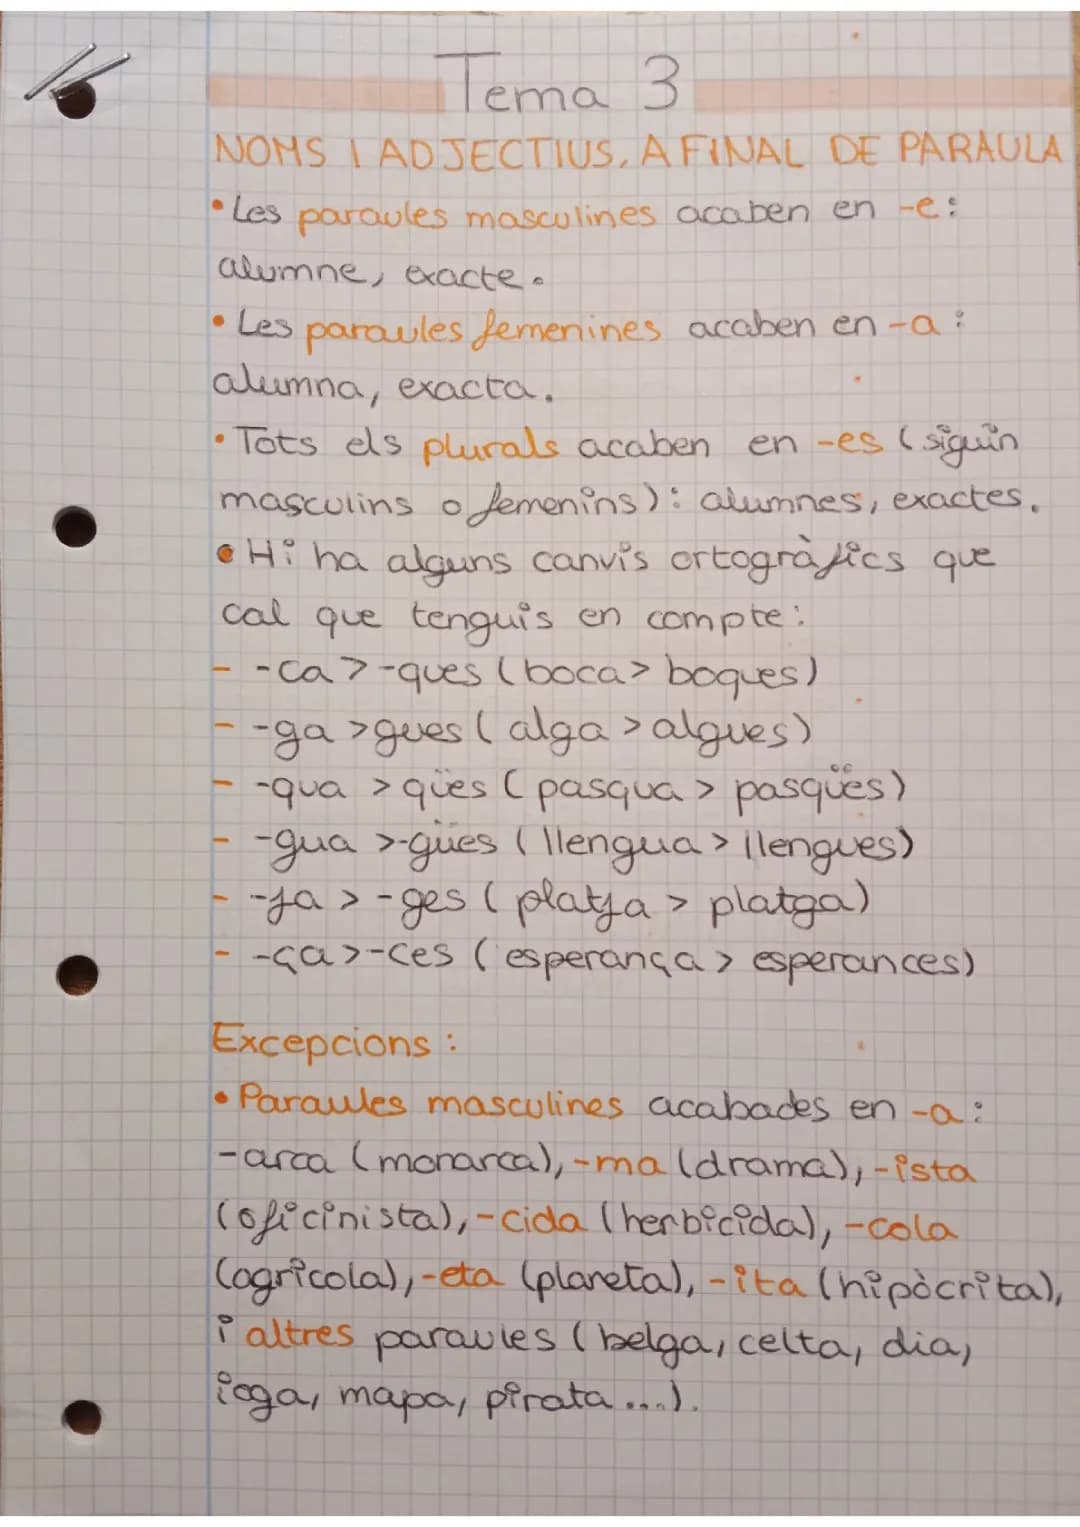 Tema 3
NOMS I ADJECTIUS, A FINAL DE PARAULA
• Les paraules masculines acaben en -e:
alumne, exacte.
• Les paraules femenines acaben en -a:
alumna, exacta.
• Tots els plurals acaben en -es (siguin
masculins o femenins): alumnes, exactes.
• Hi ha alguns canvis ortogràfics que
cal que tenguis en compte:
- -ca > -ques (boca > boques)
- -ga > gues (alga > algues)
- -qua > qües (pasqua > pasqües)
- -gua > -gües (llengua > llengues)
- -ja > -ges (platja > platga)
- -ça > -ces (esperança > esperances)
Excepcions:
• Paraules masculines acabades en -a:
-arca (monarca), -ma (drama), -ista
(oficinista), -cida (herbicida), -cola
(agrícola), -eta (planeta), -ita (hipòcrita),
i altres paraules (belga, celta, dia,
ioga, mapa, pirata ...).